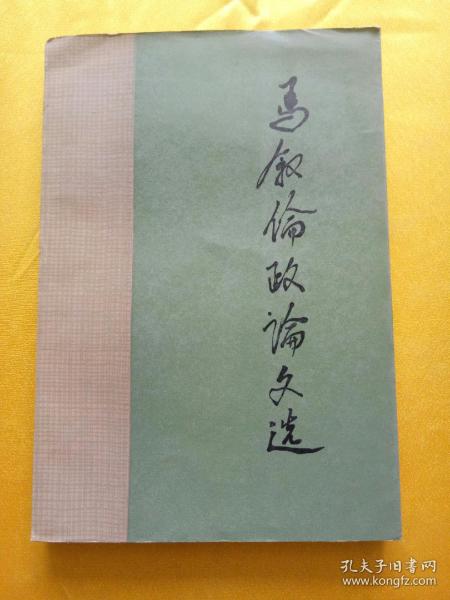 马叙伦政论文选
孔夫子旧书网
www.kongfz.com